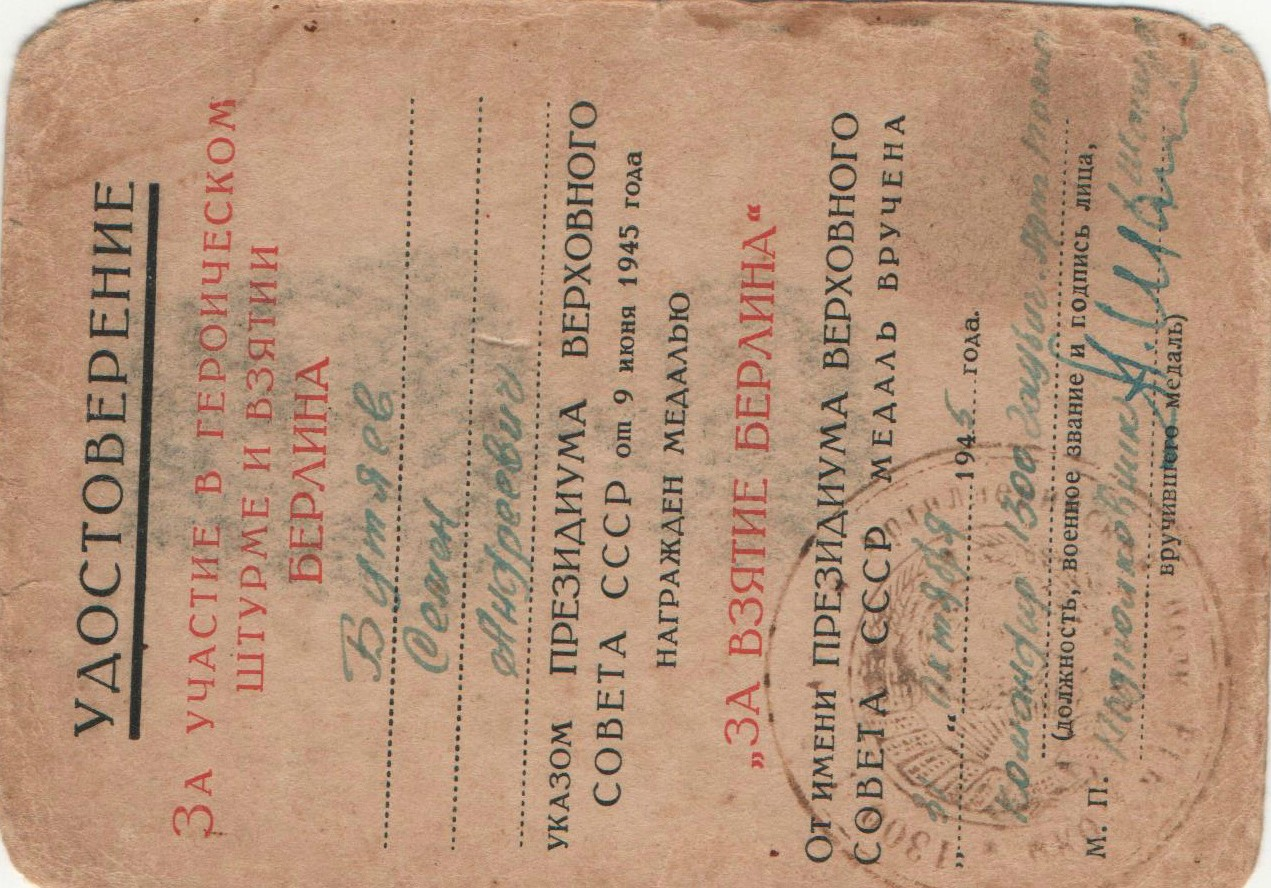 УДОСТОВЕРЕНИЕ
ЗА УЧАСТИЕ В ГЕРОИЧЕСКОМ
ШТУРМЕ И ВЗЯТИИ
БЕРЛИНА
Бутяев
Семен
Андреевич
УКАЗОМ ПРЕЗИДИУМА ВЕРХОВНОГО
СОВЕТА СССР от 9 июня 1945 года
НАГРАЖДЕН МЕДАЛЬЮ
„ЗА ВЗЯТИЕ БЕРЛИНА“
ОТ ИМЕНИ ПРЕЗИДИУМА ВЕРХОВНОГО
СОВЕТА СССР МЕДАЛЬ ВРУЧЕНА
„ “ 1945 года.
Командир 1300
(должность, военное звание и подпись лица,
М. П. Подполковник
вручившего медаль)